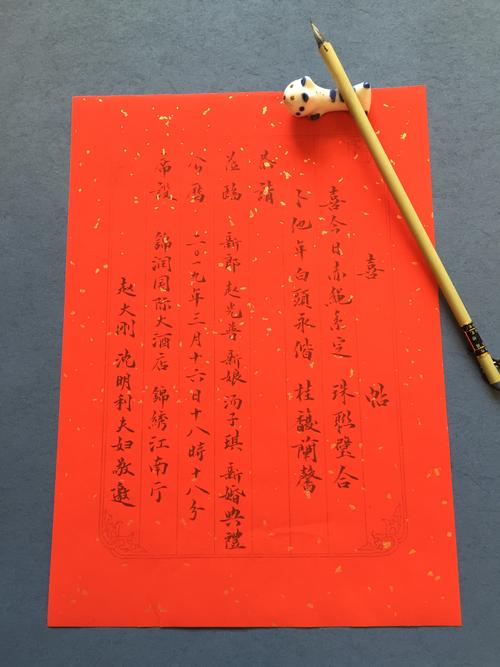 喜帖
喜今日赤绳系定 珠联璧合
卜他年白頭永偕 桂馥蘭馨
恭請
蒞臨 新郎赵光普新娘汤子琪新婚典禮
公历 二〇一九年三月十六日十八時十八分
席設 錦润国际大酒店錦綉江南厅
赵大刚沈明利夫妇敬邀